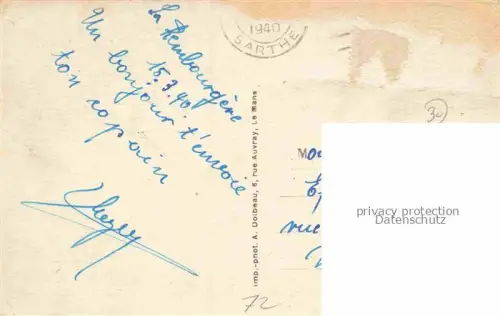 La Rembourgère
15.3.40.
Un bonjour t'envoie
ton copain
1940
SARTHE
Imp.-phot. A. Dolbeau, 6, rue Auvray, Le Mans
30
M
rue
privacy protection
Datenschutz
72